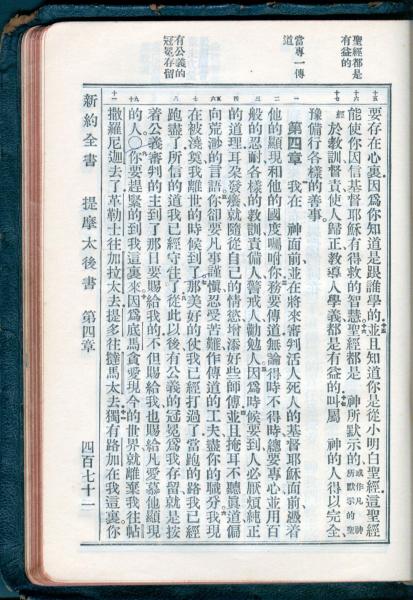 聖經都是
有益的
當專一傳
道
有公義的
冠冕存留
十五
十六
十七
一
二
三
四
五六
七
八
九十
十一
要存在心裏因爲你知道是跟誰學的並且知道你是從小明白聖經這聖經
能使你因信基督耶穌有得救的智慧聖經都是 神所默示的或作凡神所默示的聖
經於教訓督責使人歸正教導人學義都是有益的叫屬 神的人得以完全
豫備行各樣的善事
第四章 我在 神面前並在將來審判活人死人的基督耶穌面前憑着
他的顯現和他的國度囑咐你務要傳道無論得時不得時總要專心並用百
般的忍耐各樣的教訓責備人警戒人勸勉人因爲時候要到人必厭煩純正
的道理耳朶發癢就隨從自己的情慾增添好些師傅並且掩耳不聽眞道偏
向荒渺的言語你卻要凡事謹愼忍受苦難作傳道的工夫盡你的職分我現
在被澆奠我離世的時候到了那美好的仗我已經打過了當跑的路我已經
跑盡了所信的道我已經守住了從此以後有公義的冠冕爲我存留就是按
着公義審判的主到了那日要賜給我的不但賜給我也賜給凡愛慕他顯現
的人○你要趕緊的到我這裏來因爲底馬貪愛現今的世界就離棄我往帖
撒羅尼迦去了革勒士往加拉太去提多往撻馬太去獨有路加在我這裏你
新約全書 提摩太後書 第四章 四百七十一